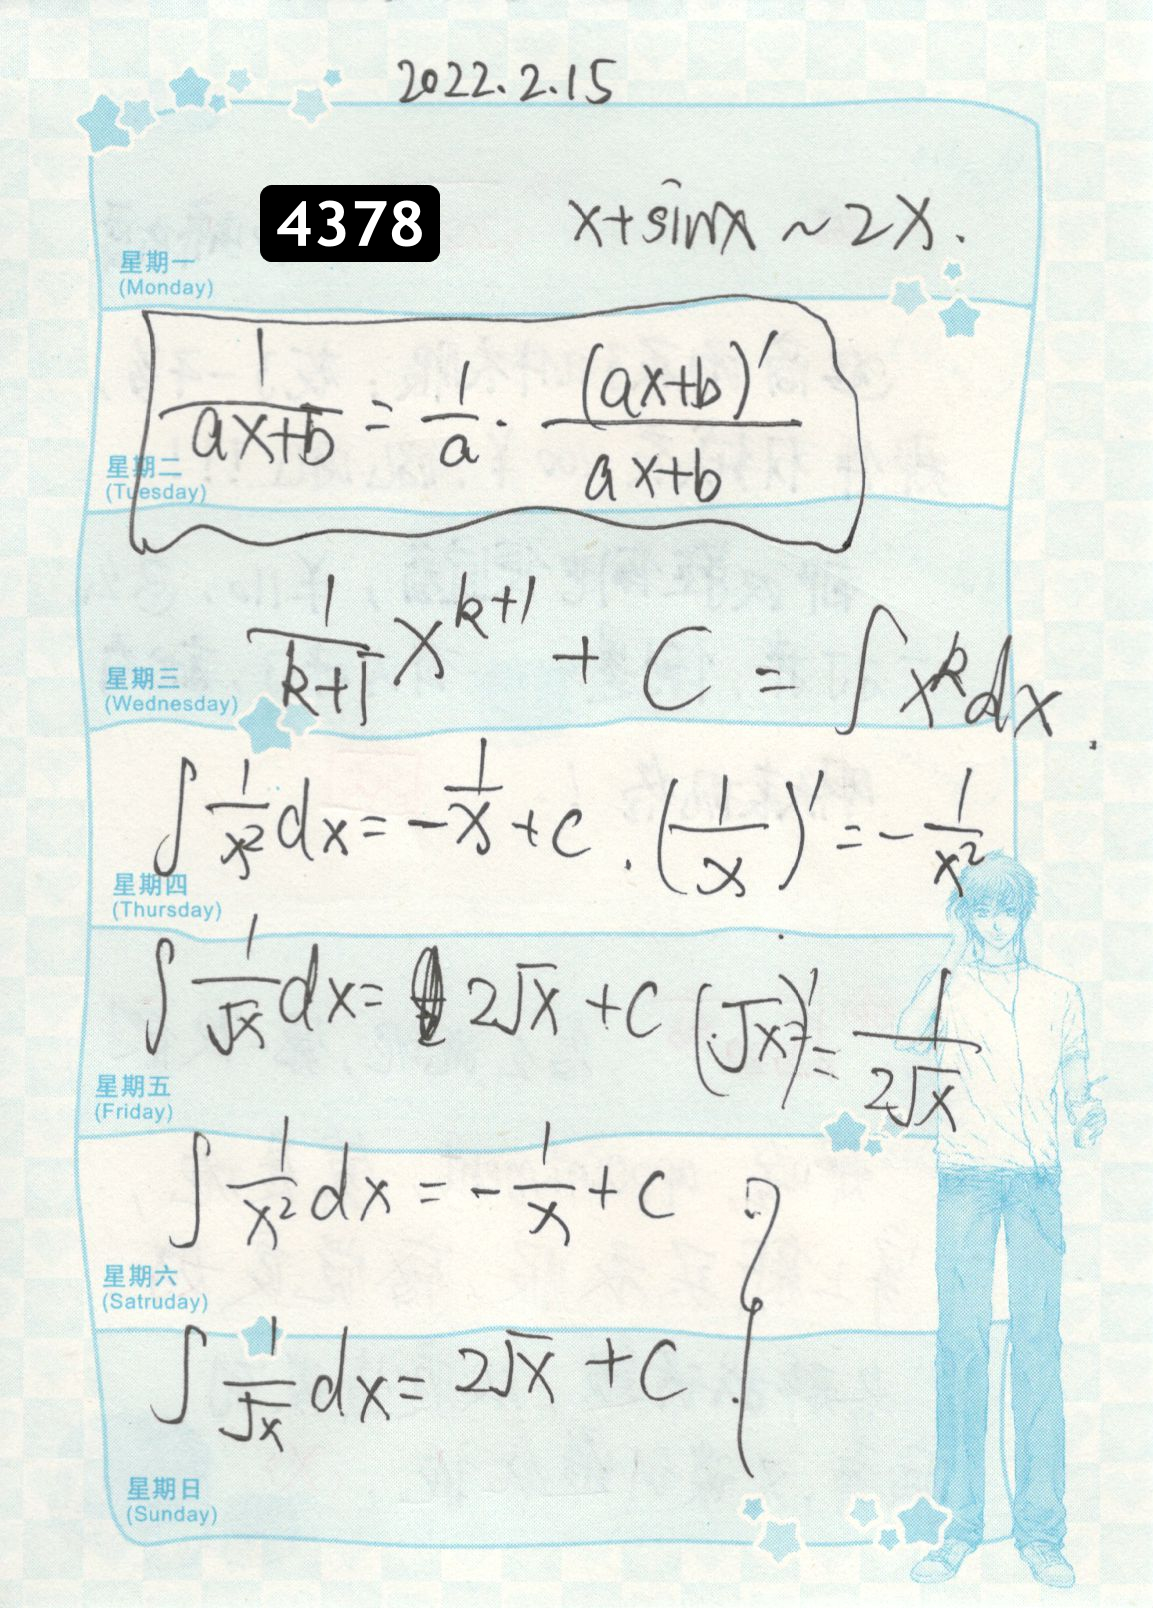 2022.2.15
4378
x+sinx ~ 2x.
星期一
(Monday)
1/(ax+b) = 1/a · (ax+b)′/(ax+b)
星期二
(Tuesday)
1/(k+1) x^(k+1) + C = ∫x^k dx.
星期三
(Wednesday)
∫1/x² dx = -1/x + C. (1/x)′ = -1/x²
星期四
(Thursday)
∫1/√x dx = 2√x + C (√x)′ = 1/(2√x)
星期五
(Friday)
∫1/x² dx = -1/x + C
星期六
(Satruday)
∫1/√x dx = 2√x + C.
星期日
(Sunday)